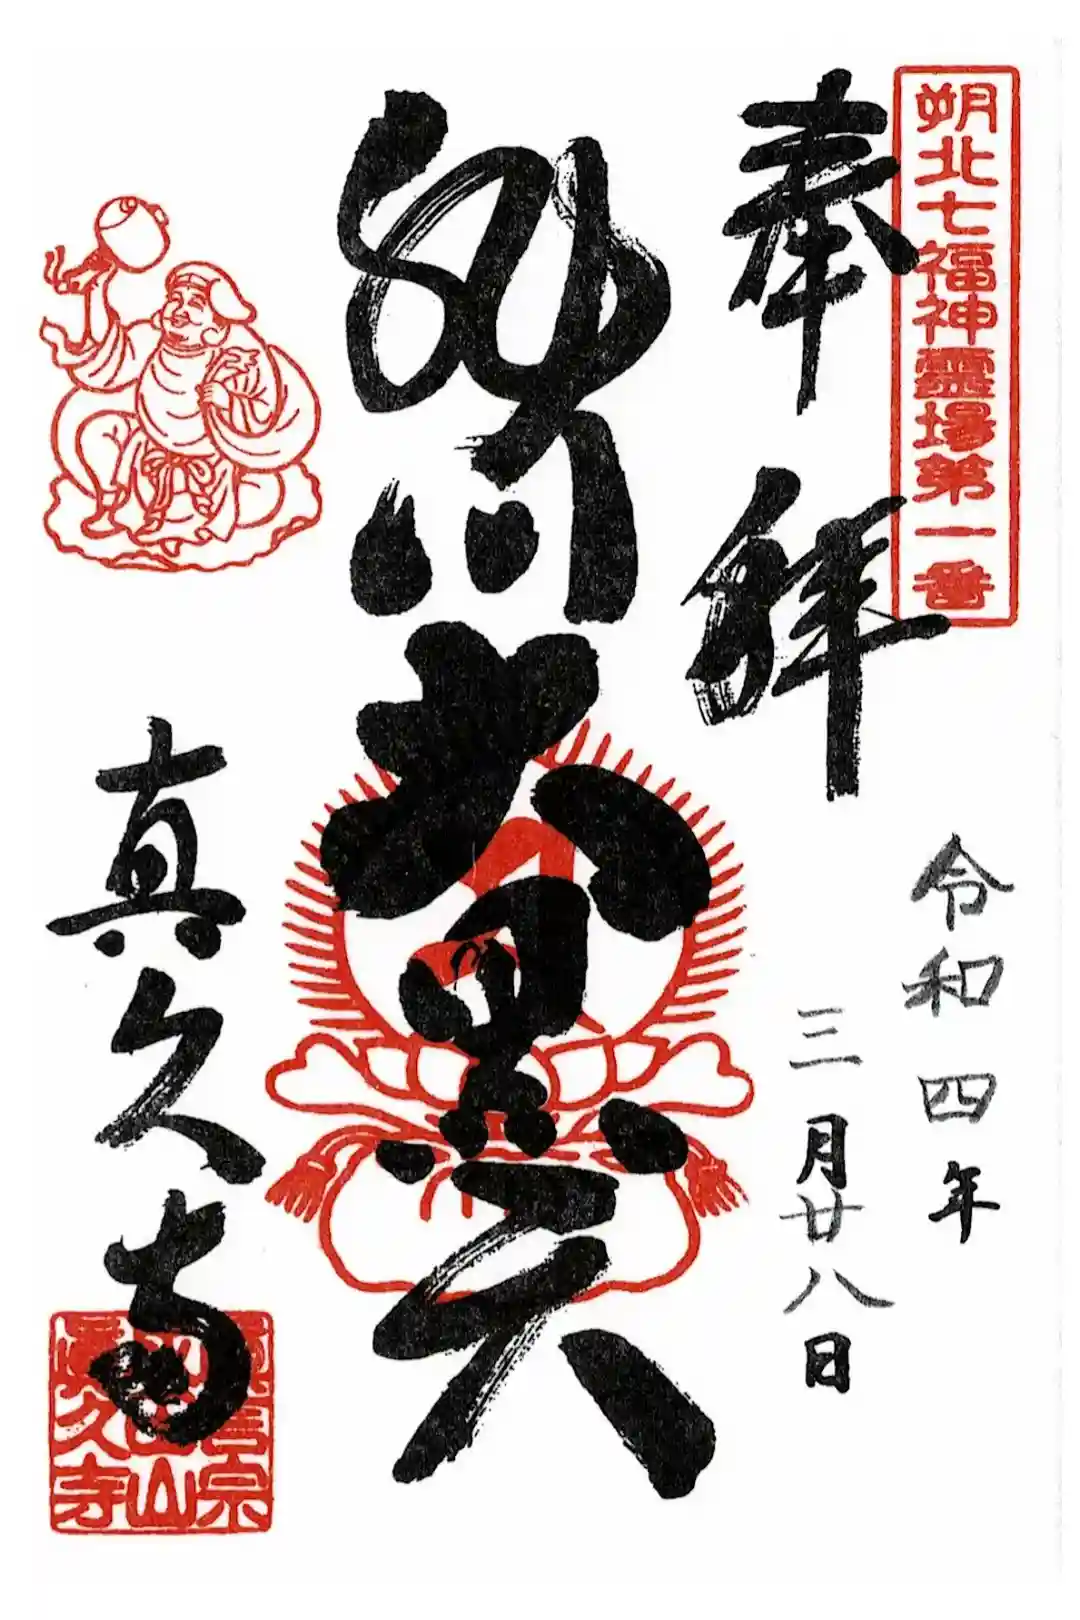 朔北七福神霊場第一番
奉拝
令和四年
三月廿八日
大黒天
真久寺
眞言宗
眞久寺